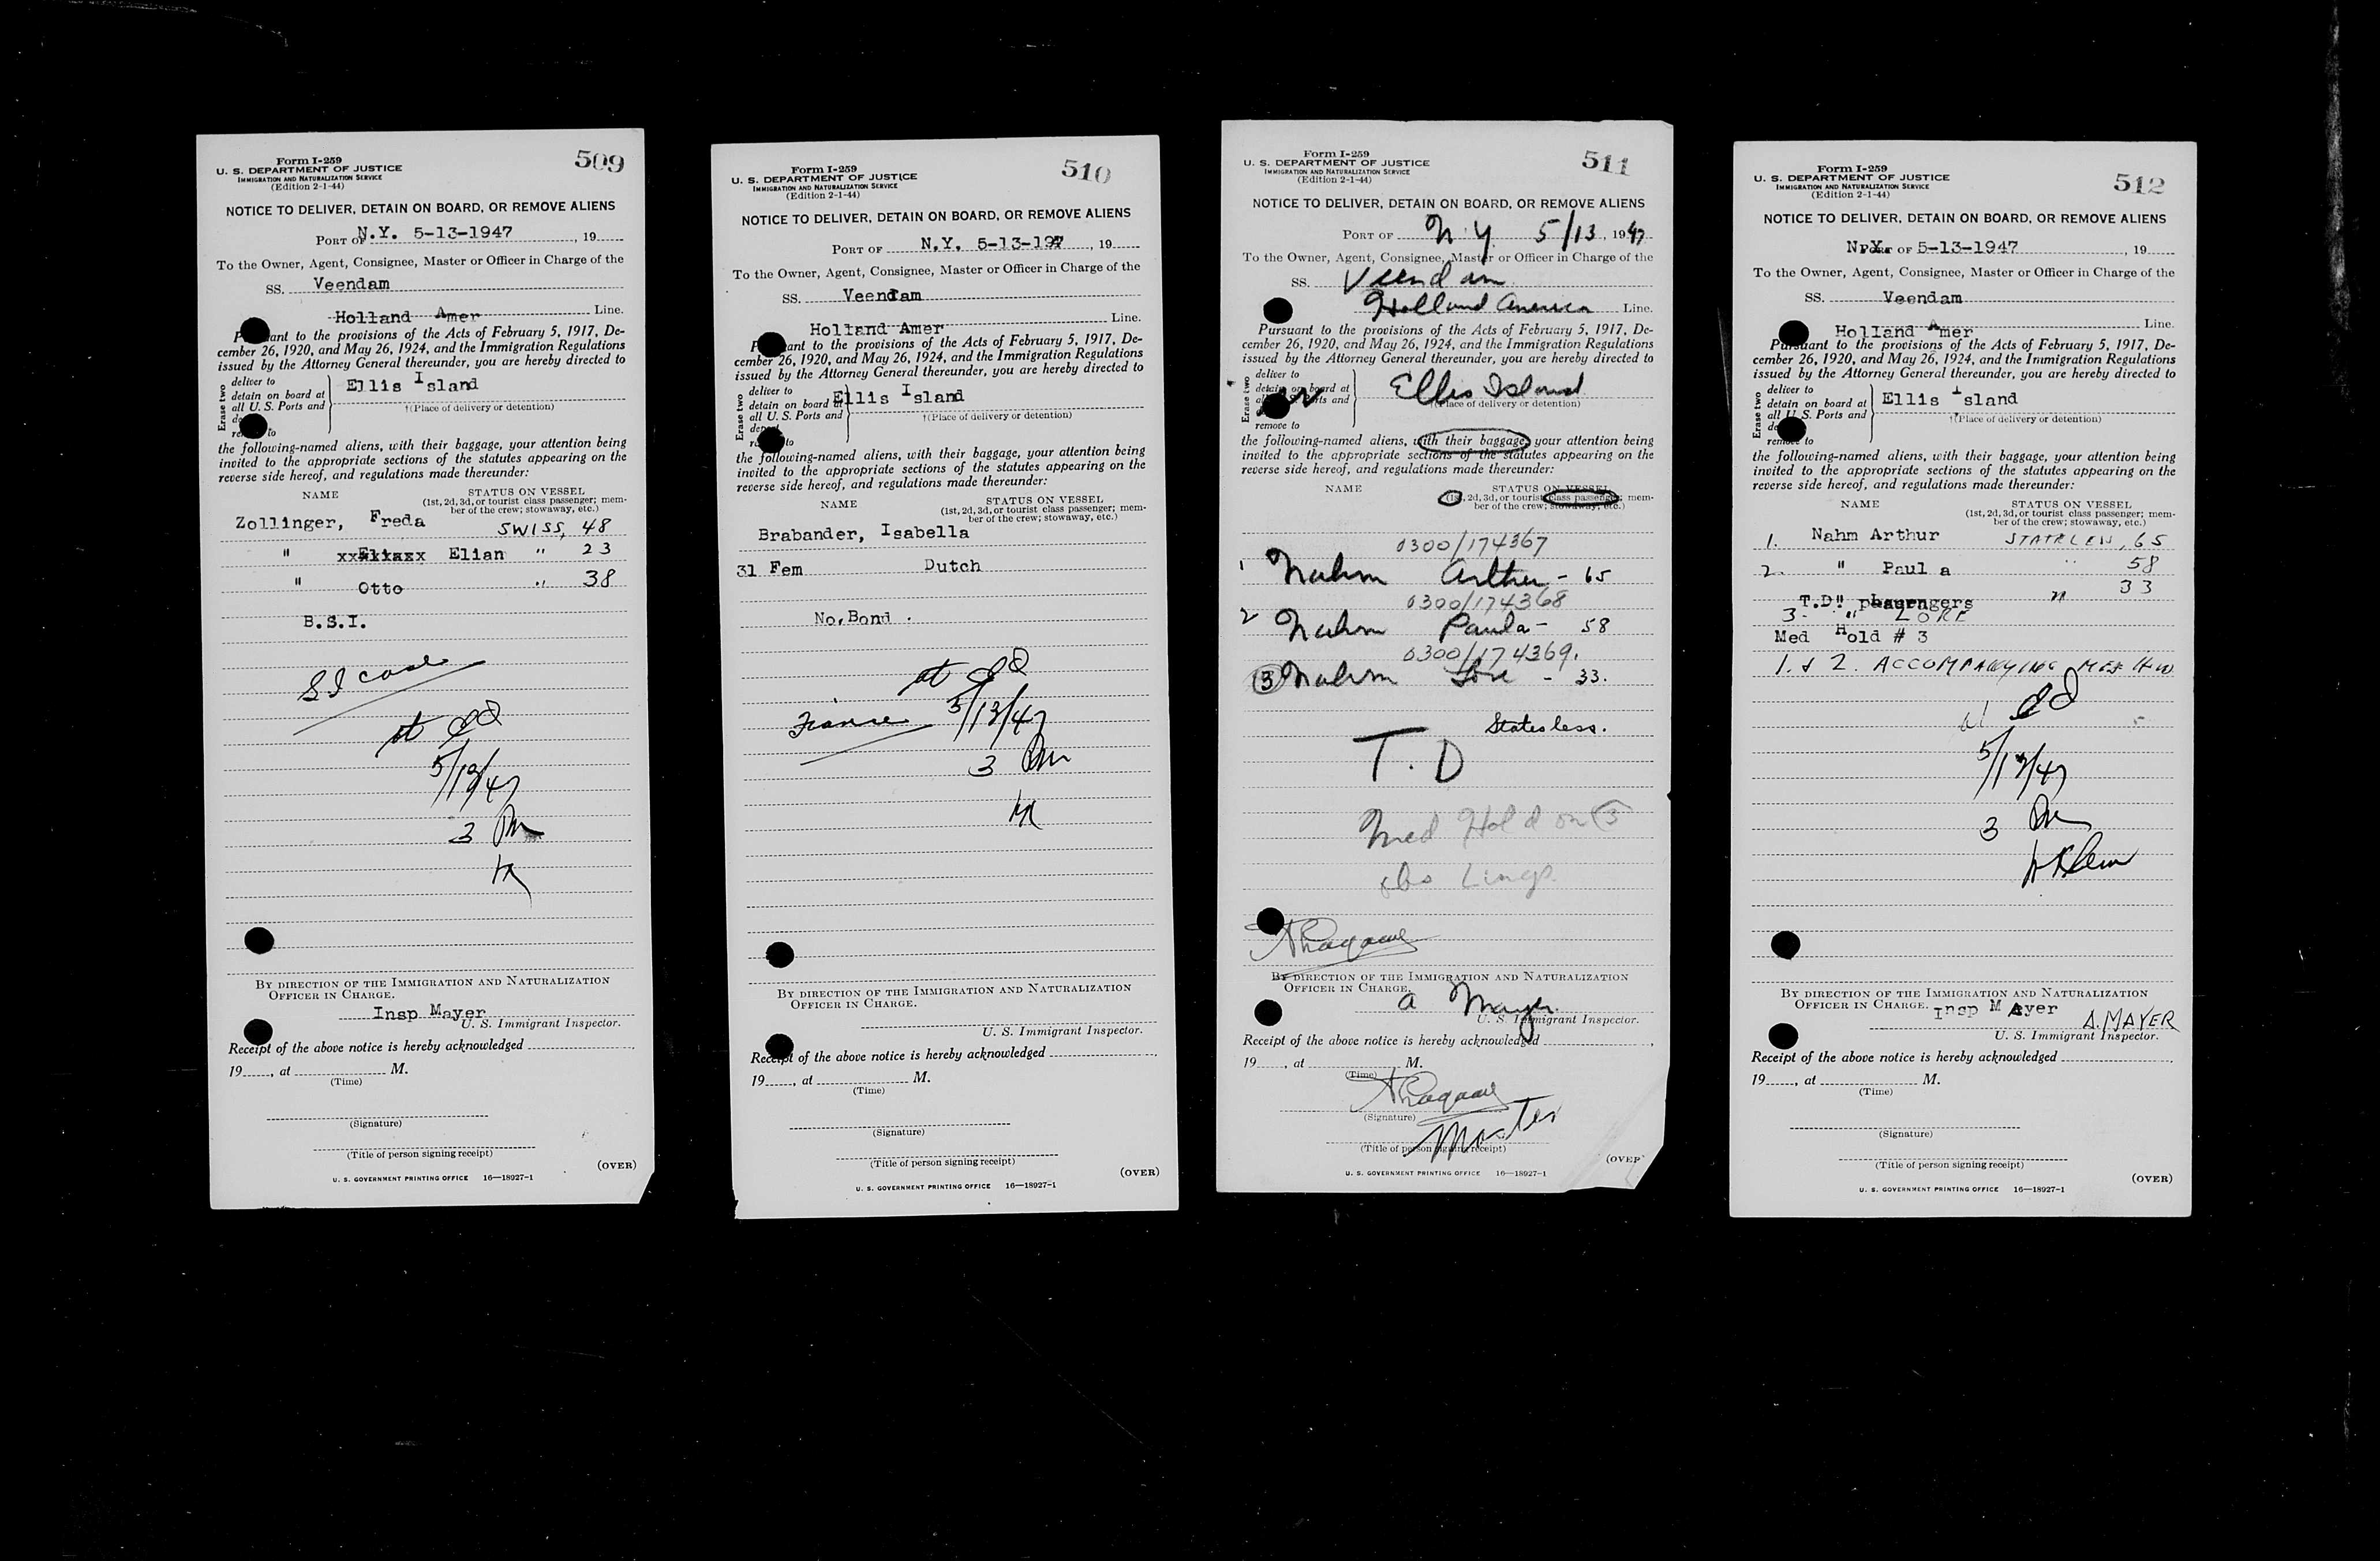 509
Form I-259
U. S. DEPARTMENT OF JUSTICE
IMMIGRATION AND NATURALIZATION SERVICE
(Edition 2-1-44)
NOTICE TO DELIVER, DETAIN ON BOARD, OR REMOVE ALIENS
PORT OF N.Y. 5-13-1947, 19
To the Owner, Agent, Consignee, Master or Officer in Charge of the
SS. Veendam
Holland Amer Line.
ant to the provisions of the Acts of February 5, 1917, De-
cember 26, 1920, and May 26, 1924, and the Immigration Regulations
issued by the Attorney General thereunder, you are hereby directed to
Erase two
deliver to
detain on board at
all U. S. Ports and
to
Ellis Island
†(Place of delivery or detention)
the following-named aliens, with their baggage, your attention being
invited to the appropriate sections of the statutes appearing on the
reverse side hereof, and regulations made thereunder:
NAME STATUS ON VESSEL
(1st, 2d, 3d, or tourist class passenger; mem-
ber of the crew; stowaway, etc.)
Zollinger, Freda SWISS, 48
" Elian " 23
" Otto " 38
B.S.I.
SI case
at
5/13/47
3 Pm
K
BY DIRECTION OF THE IMMIGRATION AND NATURALIZATION
OFFICER IN CHARGE.
Insp Mayer
U. S. Immigrant Inspector.
Receipt of the above notice is hereby acknowledged
19, at M.
(Time)
(Signature)
(Title of person signing receipt)
(OVER)
U. S. GOVERNMENT PRINTING OFFICE 16—18927-1
510
Form I-259
U. S. DEPARTMENT OF JUSTICE
IMMIGRATION AND NATURALIZATION SERVICE
(Edition 2-1-44)
NOTICE TO DELIVER, DETAIN ON BOARD, OR REMOVE ALIENS
PORT OF N.Y. 5-13-197, 19
To the Owner, Agent, Consignee, Master or Officer in Charge of the
SS. Veendam
Holland Amer Line.
ant to the provisions of the Acts of February 5, 1917, De-
cember 26, 1920, and May 26, 1924, and the Immigration Regulations
issued by the Attorney General thereunder, you are hereby directed to
Erase two
deliver to
detain on board at
all U. S. Ports and
to
Ellis Island
†(Place of delivery or detention)
the following-named aliens, with their baggage, your attention being
invited to the appropriate sections of the statutes appearing on the
reverse side hereof, and regulations made thereunder:
NAME STATUS ON VESSEL
(1st, 2d, 3d, or tourist class passenger; mem-
ber of the crew; stowaway, etc.)
Brabander, Isabella
31 Fem Dutch
No.Bond .
at
Fiance 5/13/47
3 Pm
K
BY DIRECTION OF THE IMMIGRATION AND NATURALIZATION
OFFICER IN CHARGE.
U. S. Immigrant Inspector.
Receipt of the above notice is hereby acknowledged
19, at M.
(Time)
(Signature)
(Title of person signing receipt)
(OVER)
U. S. GOVERNMENT PRINTING OFFICE 16—18927-1
511
Form I-259
U. S. DEPARTMENT OF JUSTICE
IMMIGRATION AND NATURALIZATION SERVICE
(Edition 2-1-44)
NOTICE TO DELIVER, DETAIN ON BOARD, OR REMOVE ALIENS
PORT OF N.Y. 5/13, 1947
To the Owner, Agent, Consignee, Master or Officer in Charge of the
SS. Veendam
Holland America Line.
Pursuant to the provisions of the Acts of February 5, 1917, De-
cember 26, 1920, and May 26, 1924, and the Immigration Regulations
issued by the Attorney General thereunder, you are hereby directed to
Erase two
deliver to
detain on board at
remove to
Ellis Island
†(Place of delivery or detention)
the following-named aliens, with their baggage, your attention being
invited to the appropriate sections of the statutes appearing on the
reverse side hereof, and regulations made thereunder:
NAME STATUS ON VESSEL
(1st, 2d, 3d, or tourist class passenger; mem-
ber of the crew; stowaway, etc.)
0300/174367
1 Nahm Arthur - 65
0300/174368
2 Nahm Paula - 58
0300/174369.
3 Nahm Lore - 33.
Stateless.
T.D
Med Hold on 3
Lings
BY DIRECTION OF THE IMMIGRATION AND NATURALIZATION
OFFICER IN CHARGE.
A Mayer
U. S. Immigrant Inspector.
Receipt of the above notice is hereby acknowledged
19, at M.
(Time)
(Signature)
Master
(Title of person signing receipt)
(OVER
U. S. GOVERNMENT PRINTING OFFICE 16—18927-1
512
Form I-259
U. S. DEPARTMENT OF JUSTICE
IMMIGRATION AND NATURALIZATION SERVICE
(Edition 2-1-44)
NOTICE TO DELIVER, DETAIN ON BOARD, OR REMOVE ALIENS
N.Y. PORT OF 5-13-1947, 19
To the Owner, Agent, Consignee, Master or Officer in Charge of the
SS. Veendam
Holland Amer Line.
Pursuant to the provisions of the Acts of February 5, 1917, De-
cember 26, 1920, and May 26, 1924, and the Immigration Regulations
issued by the Attorney General thereunder, you are hereby directed to
Erase two
deliver to
detain on board at
all U. S. Ports and
remove to
Ellis Island
†(Place of delivery or detention)
the following-named aliens, with their baggage, your attention being
invited to the appropriate sections of the statutes appearing on the
reverse side hereof, and regulations made thereunder:
NAME STATUS ON VESSEL
(1st, 2d, 3d, or tourist class passenger; mem-
ber of the crew; stowaway, etc.)
1. Nahm Arthur STATELESS, 65
2. " Paul a " 58
33
T.D. passengers "
3. " LORE
Med Hold # 3
1. & 2. ACCOMPANYING MED HOLD
5/13/47
3 Pm
BY DIRECTION OF THE IMMIGRATION AND NATURALIZATION
OFFICER IN CHARGE.
Insp Mayer A. MAYER
U. S. Immigrant Inspector.
Receipt of the above notice is hereby acknowledged
19, at M.
(Time)
(Signature)
(Title of person signing receipt)
(OVER)
U. S. GOVERNMENT PRINTING OFFICE 16—18927-1